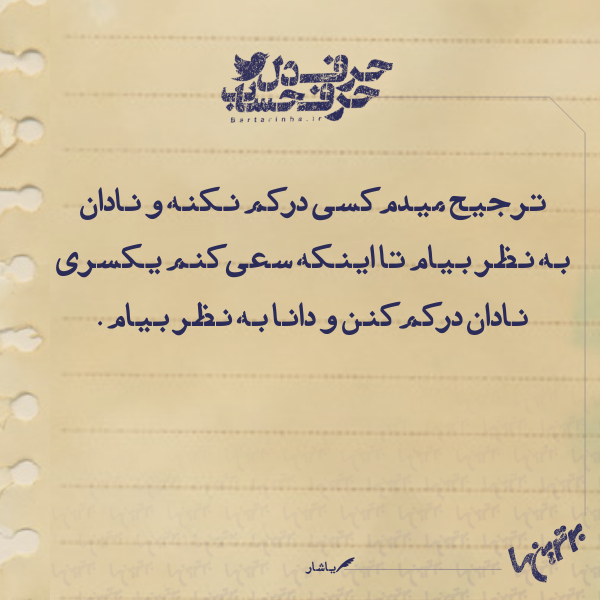 حرف دل
حرف حساب
Bartarinha.ir
ترجیح میدم کسی درکم نکنه و نادان
به نظر بیام تا اینکه سعی کنم یکسری
نادان درکم کنن و دانا به نظر بیام .
یاشار
برترین‌ها